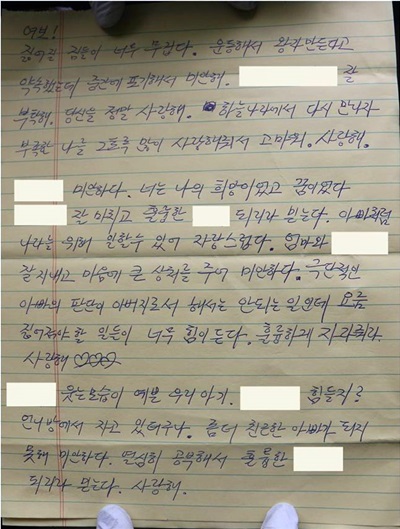 여보!
짊어질 짐들이 너무 무겁다. 운동해서 왕자 만든다고
약속했는데 중간에 포기해서 미안해. 잘
부탁해. 당신을 정말 사랑해. 하늘나라에서 다시 만나자
부족한 나를 그토록 많이 사랑해줘서 고마워. 사랑해.
미안하다. 너는 나의 희망이었고 꿈이었다
잘 마치고 훌륭한 되리라 믿는다. 아빠처럼
나라를 위해 일할수 있어 자랑스럽다. 엄마와
잘지내고 마음에 큰 상처를 주어 미안하다. 극단적인
아빠의 판단이 아버지로서 해서는 안되는 일인데 요즘
짊어져야 할 일들이 너무 힘이 든다. 훌륭하게 자라줘라
사랑해 ♡♡♡
웃는모습이 예쁜 우리아기. 힘들지?
언니방에서 자고 있더구나. 좀더 친근한 아빠가 되지
못해 미안하다. 열심히 공부해서 훌륭한
되리라 믿는다. 사랑해.